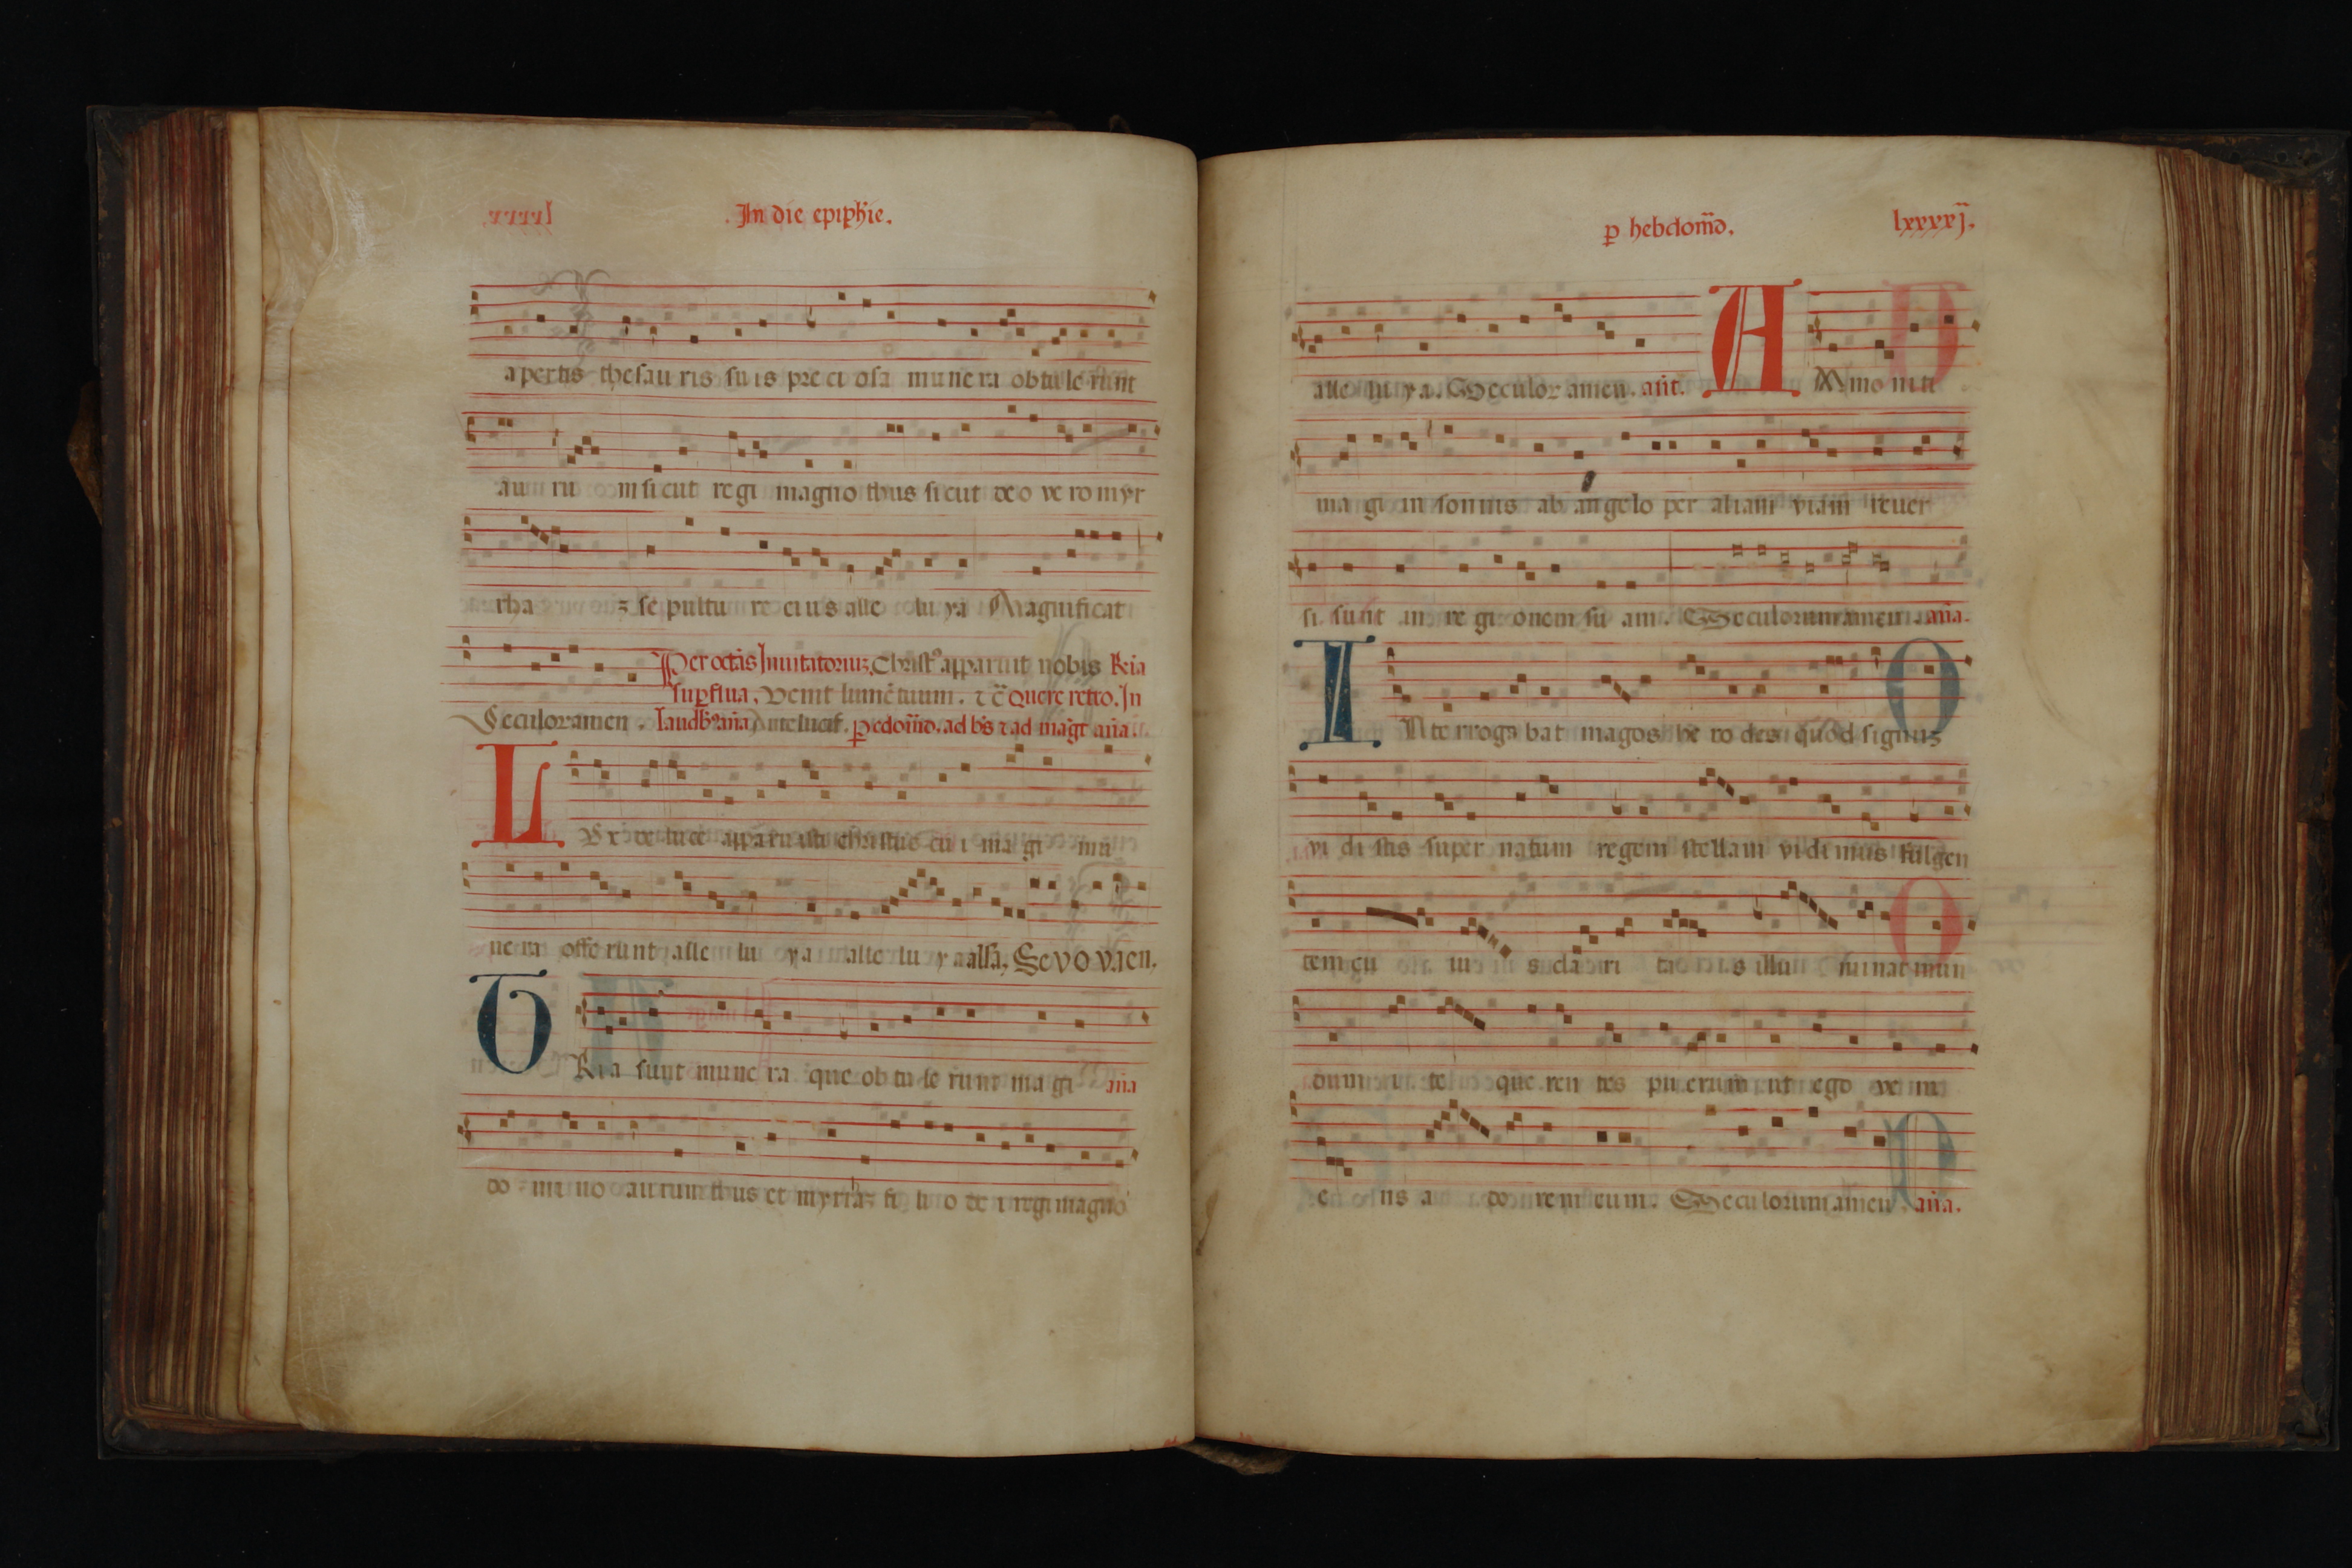 In die epiphie.
apertis thesau ris su is preci osa mune ra obtule runt
au ru m sicut regi magno thus sicut deo vero myr
rha ⁊ se pultu re eius alle lu ya Magnificat
Per octās Inuitatoriuz, Christ⁹ apparuit nobis
sup̄flua, Venit lumē tuum. ⁊ c̄ Quere retro. In
Seculor amen. laudb⁹ an̄a Ante lucif. p̄ edom̄d. ad bn̄s ⁊ ad magt an̄a.
L Vx de luce apparu isti christe cu i ma gi mu
ne ra offe runt alle lu ya alle lu ya alla, Sevovaen.
T Ria sunt mune ra que ob tu le runt ma gi an̄a
do mi no aurum thus et myrrā ⁊ fi li o de i regi magno
p hebdom̄d.
lxxxxj.
alle lu ya. Seculor amen. an̄t. A Mmo niti
ma gi in somnis ab an gelo per aliam viam reuer
si sunt in re gi onem su am. Seculorum amen. an̄a.
I Nte rroga bat magos he ro des quod signuz
vi di stis super natum regem stellam vidi mus fulgen
tem cu iu s cla ri ta s illu minat mun
dum i te que ren tes pu erum ut ego ve ni
e ns a do rem eum. Seculorum amen an̄a.